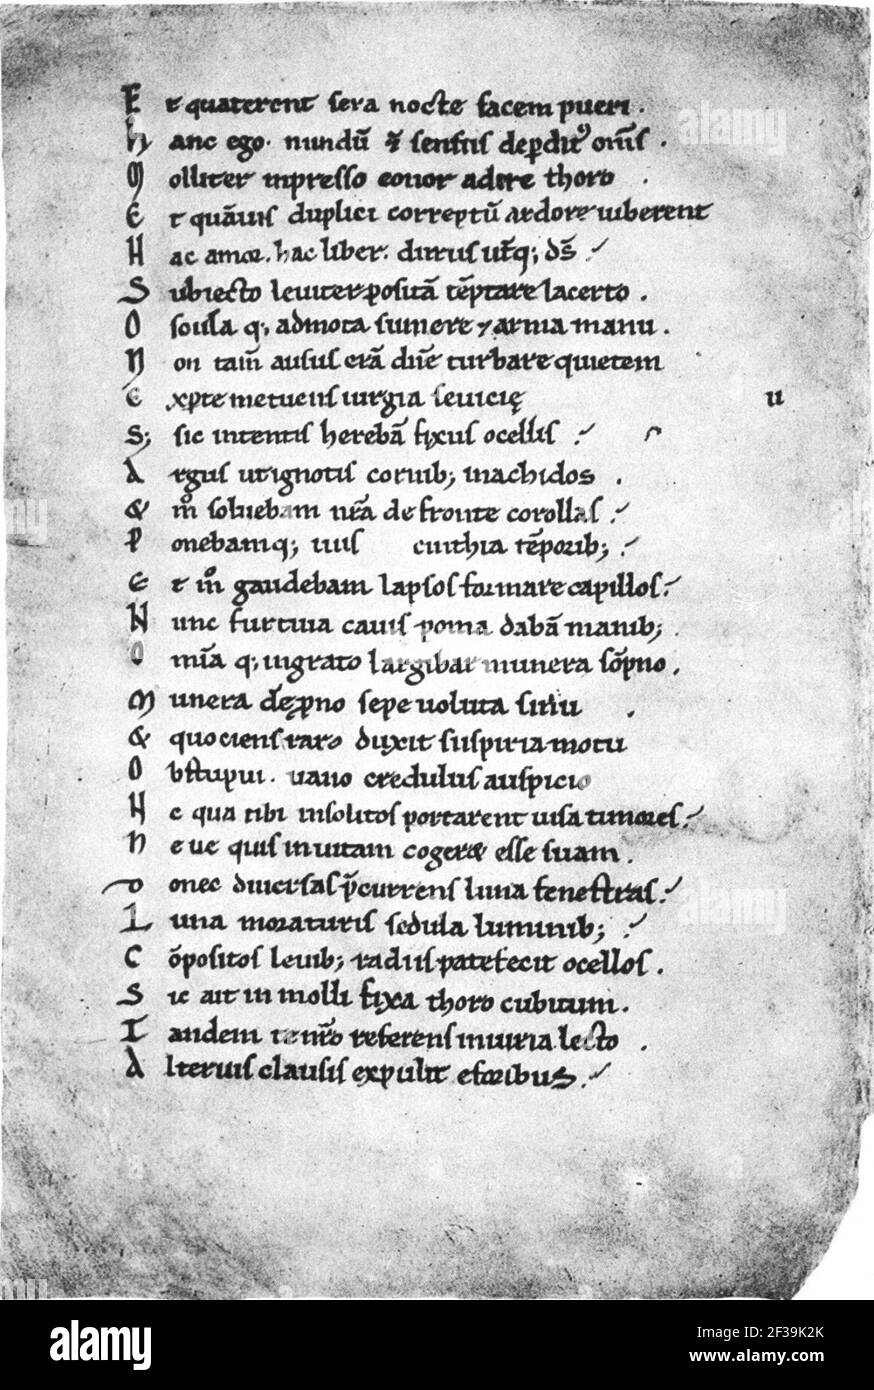 E t quaterent sera nocte facem pueri .
h anc ego . nundū & sensus deꝑdit᷒ om̄s .
M olliter inpresso conor adire thoro .
E t quāuis duplici correptū ardore iuberent
H ac amor . hac liber . durus ut̄q; d̄s
S ubiecto leuiter positā tēptare lacerto .
O scula q; admota sumere & arma manu .
N on tam̄ ausus erā dn̄e turbare quietem
E xꝑte metuens iurgia seuicię
u
S; sic intentis herebā fixus ocellis
A rgus ut ignotis cornib; inachidos .
& m̊ soluebam nr̄a de fronte corollas
P onebamq; tuis cinthia tēporib;
E t m̊ gaudebam lapsos formare capillos
N unc furtiua cauis poma dabā manib; .
O mīa q; ingrato largibar munera sōpno .
M unera de ꝓno sepe uoluta sinu .
& quociens raro duxit suspiria motu
O bstupui . uano credulus auspicio
N e qua tibi insolitos portarent uisa timores
N eue quis inuitam cogeret esse suam .
D onec diuersas p̄currens luna fenestras
L una moraturis sedula luminib;
C ōpositos leuib; radiis patefecit ocellos .
S ic ait in molli fixa thoro cubitum .
T andem te nr̄o referens iniuria lecto .
A lterius clausis expulit eforibus
alamy
Image ID: 2F39K2K
www.alamy.com